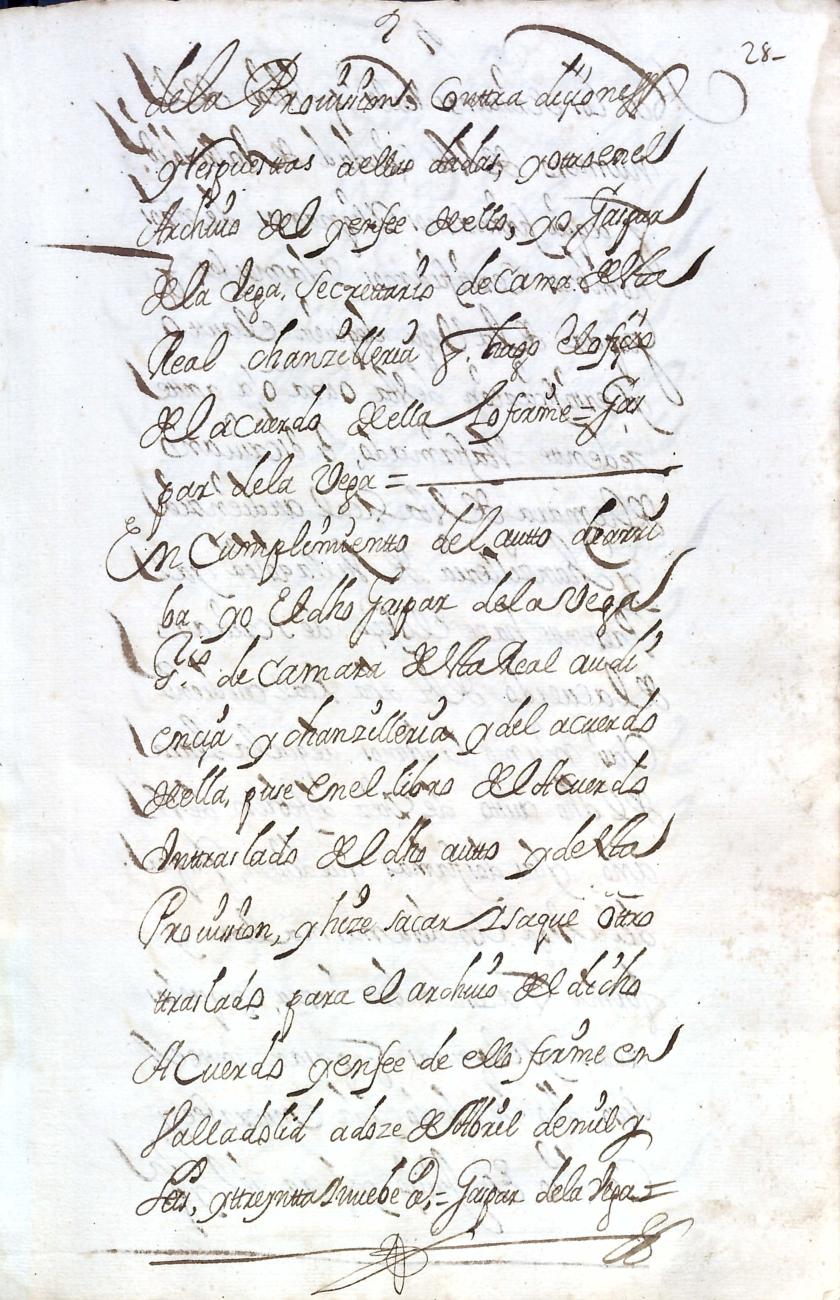 28-
dela Provision. Contradiçiones
y Respuestas a ellas dadas, y otro en el
Archivo del y enfee dello, yo Gaspar
de la Vega, Secretario de Cama. desta
Real chanzilleria q. hago el offiçio
del acuerdo della Lo firme = Gas
par dela Vega =
En Cumplimiento del autto dearri
ba yo El dho Gaspar dela Vega
S.rio de Camara desta Real audi
encia y chanzilleria y del acuerdo
della, puse en el libro del Acuerdo
Un traslado del dho autto y desta
Provision, y hize sacar I saque ottro
traslado para el archivo del dicho
Acuerdo y enfee de ello firme en
Valladolid a doze de Abril de mill y
Seis, y treyntta I nuebe a.s = Gaspar dela Vega =